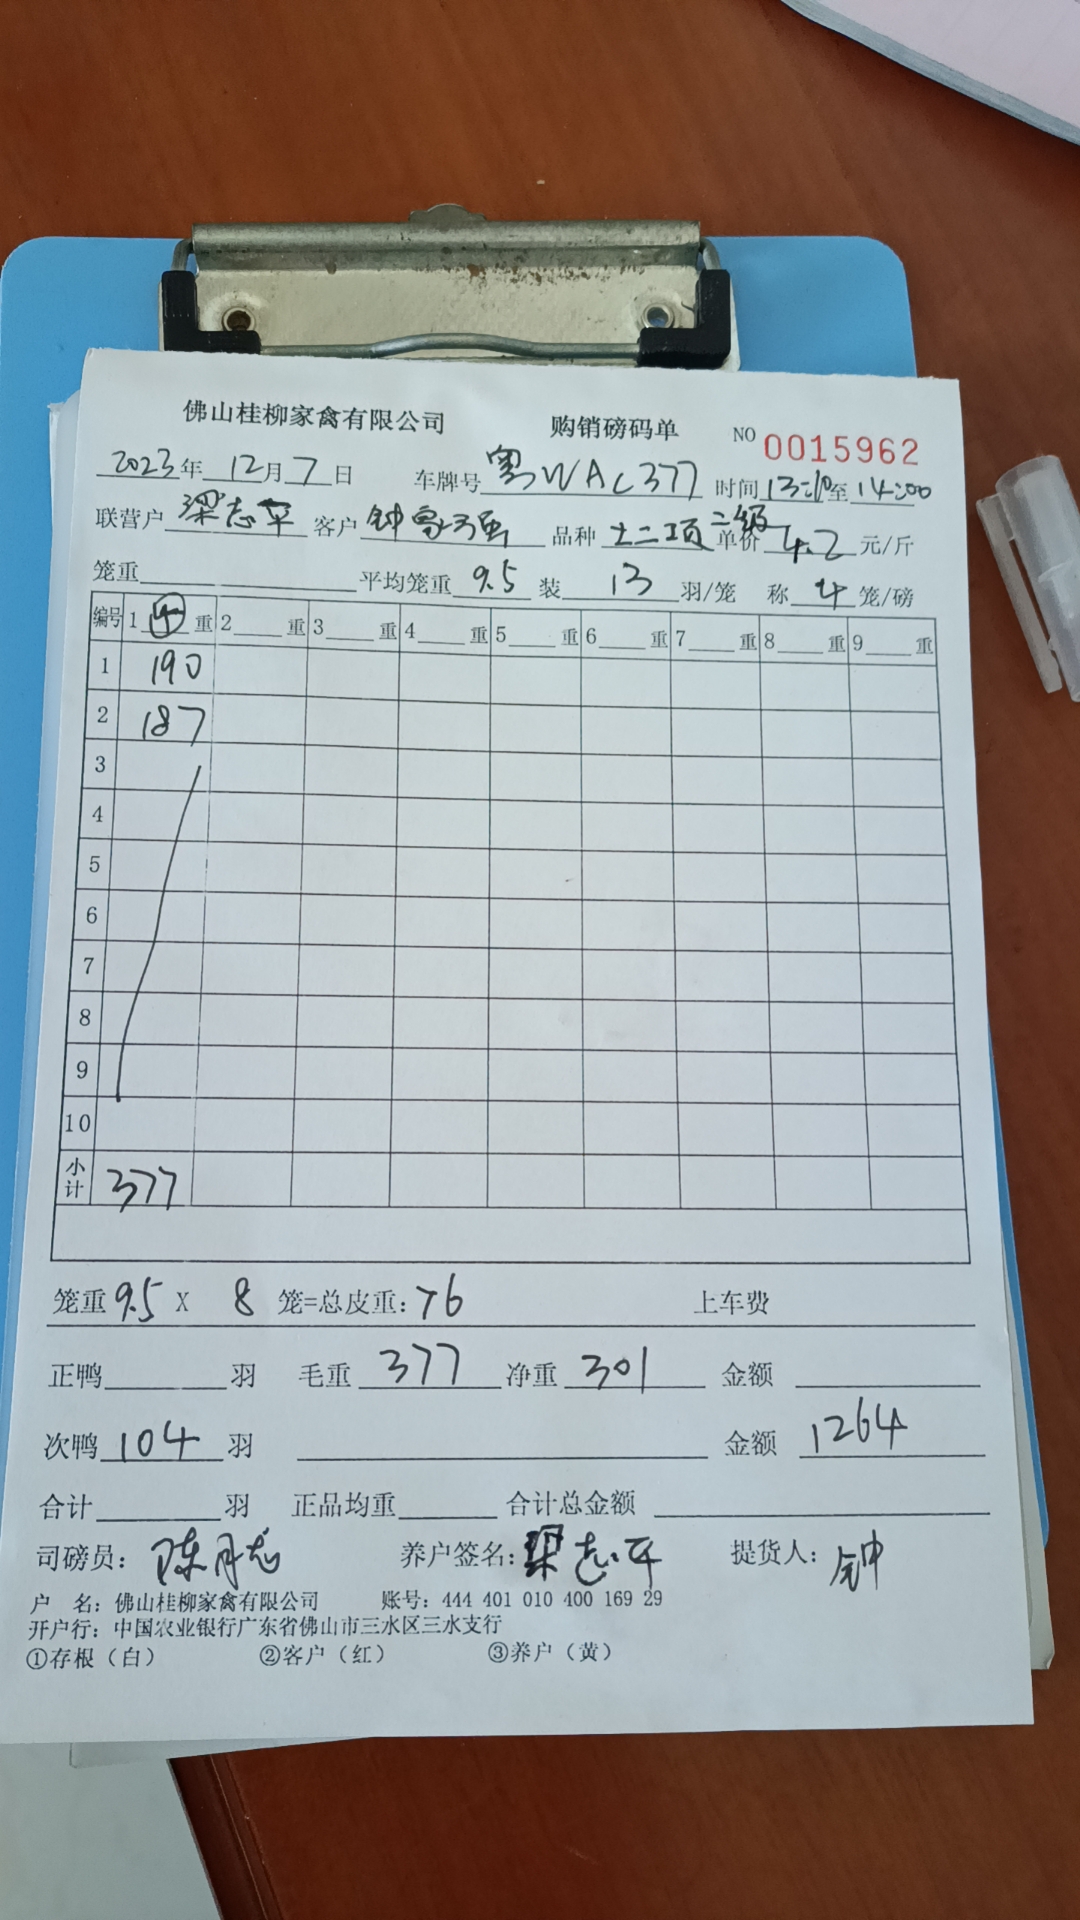 佛山桂柳家禽有限公司 购销磅码单 NO 0015962
2023年 12月 7日 车牌号 粤WAC377 时间 13:10 至 14:00
联营户 梁志平 客户 钟 品种 土二项 二级 单价 4.2 元/斤
笼重 平均笼重 9.5 装 13 羽/笼 称 4 笼/磅
编号 1 ④ 重 2 重 3 重 4 重 5 重 6 重 7 重 8 重 9 重
1 190
2 187
3
4
5
6
7
8
9
10
小计 377
笼重 9.5 X 8 笼=总皮重: 76 上车费
正鸭 羽 毛重 377 净重 301 金额
次鸭 104 羽 金额 1264
合计 羽 正品均重 合计总金额
司磅员: 陈 养户签名: 梁志平 提货人: 钟
户 名: 佛山桂柳家禽有限公司 账号: 444 401 010 400 169 29
开户行: 中国农业银行广东省佛山市三水区三水支行
①存根（白） ②客户（红） ③养户（黄）